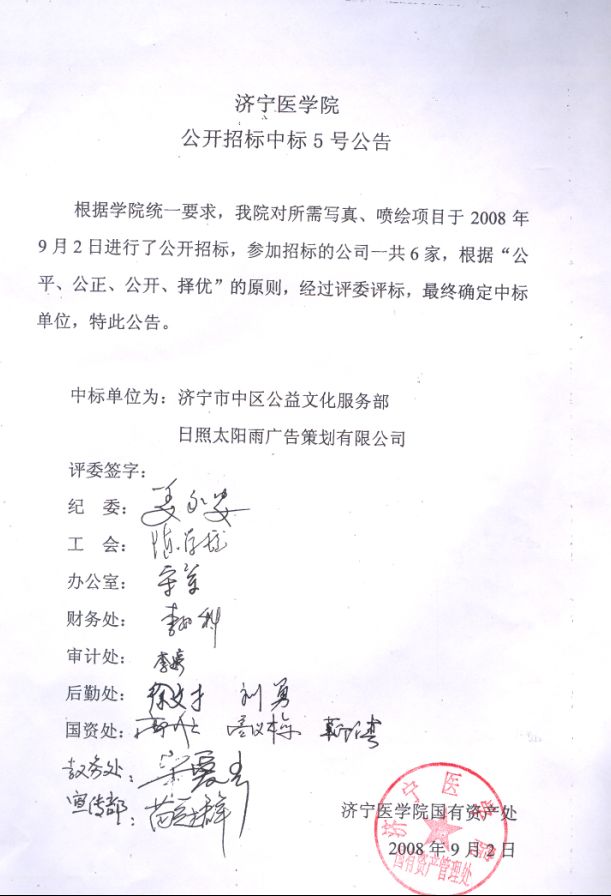 济宁医学院
公开招标中标5号公告
根据学院统一要求，我院对所需写真、喷绘项目于2008年
9月2日进行了公开招标，参加招标的公司一共6家，根据“公
平、公正、公开、择优”的原则，经过评委评标，最终确定中标
单位，特此公告。
中标单位为：济宁市中区公益文化服务部
日照太阳雨广告策划有限公司
评委签字：
纪 委：
工 会：
办公室：
财务处：
审计处：李婷
后勤处：徐文才 刘勇
国资处：
教务处：
宣传部：
济宁医学院国有资产处
2008年9月2日
济宁医学院
国有资产管理处